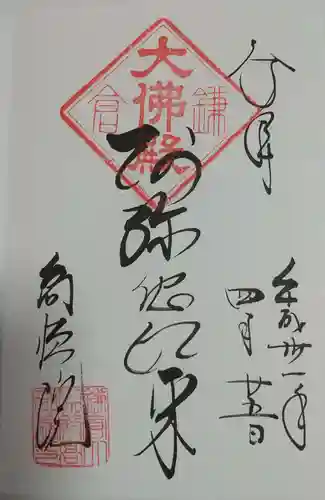 奉拝
平成卅一年
四月廿五日
鎌倉
大佛殿
阿弥陀如来
高徳院